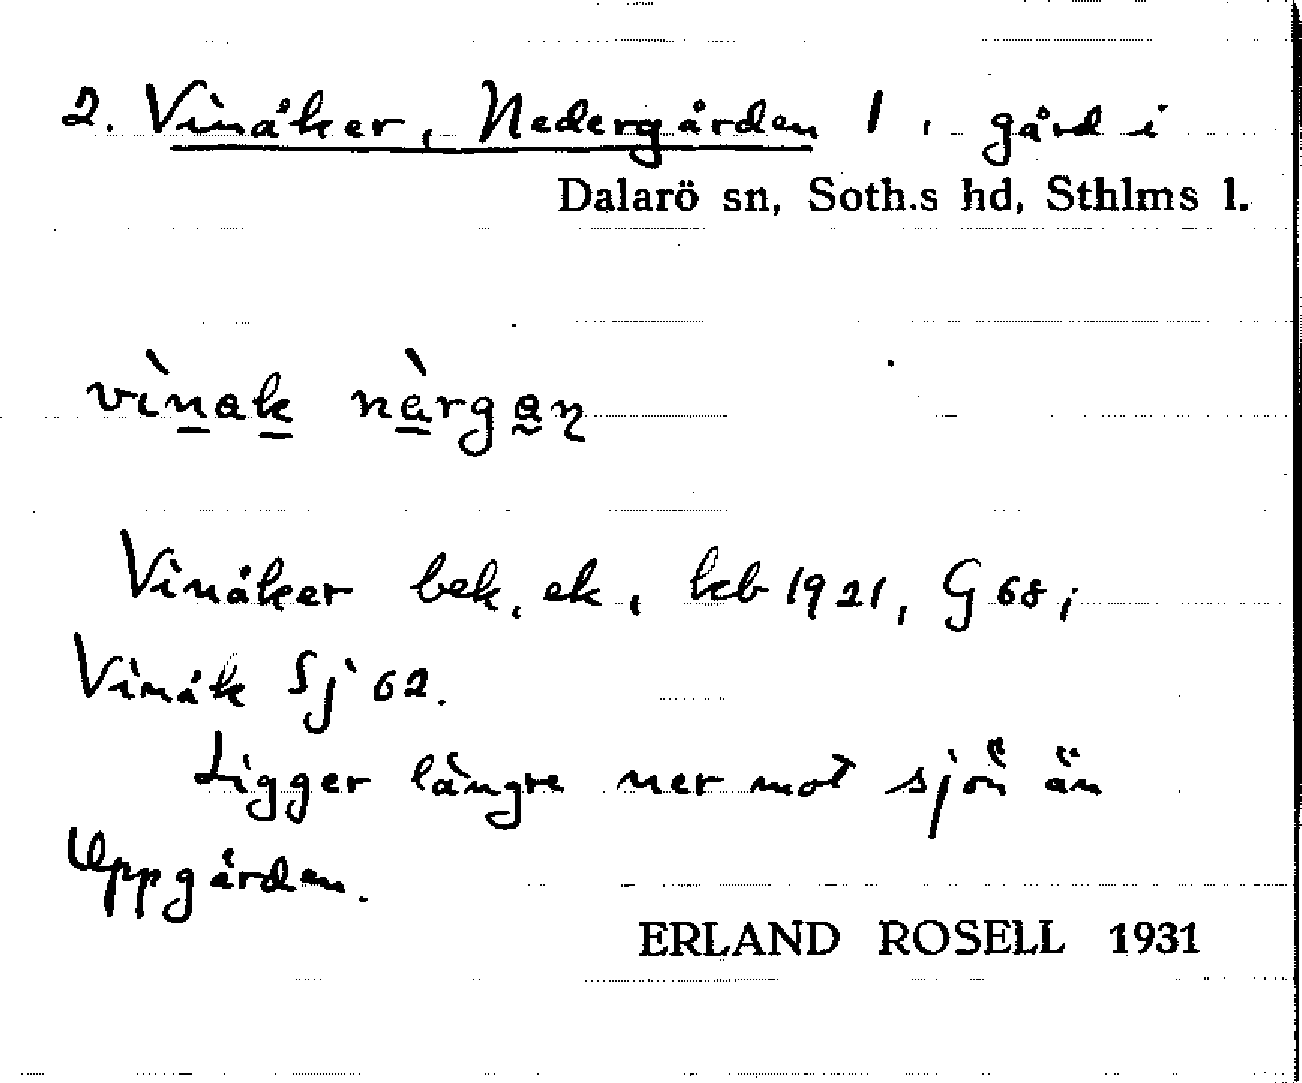 2. Vinåker, Nedergården 1, gård i
Dalarö sn, Soth.s hd, Sthlms l.
vìnak nàrgaɳ
Vinåker bek, ek, kb 1921, G 68;
Vinåk Sj 62.
Ligger längre ner mot sjön än
Uppgården.
ERLAND ROSELL 1931